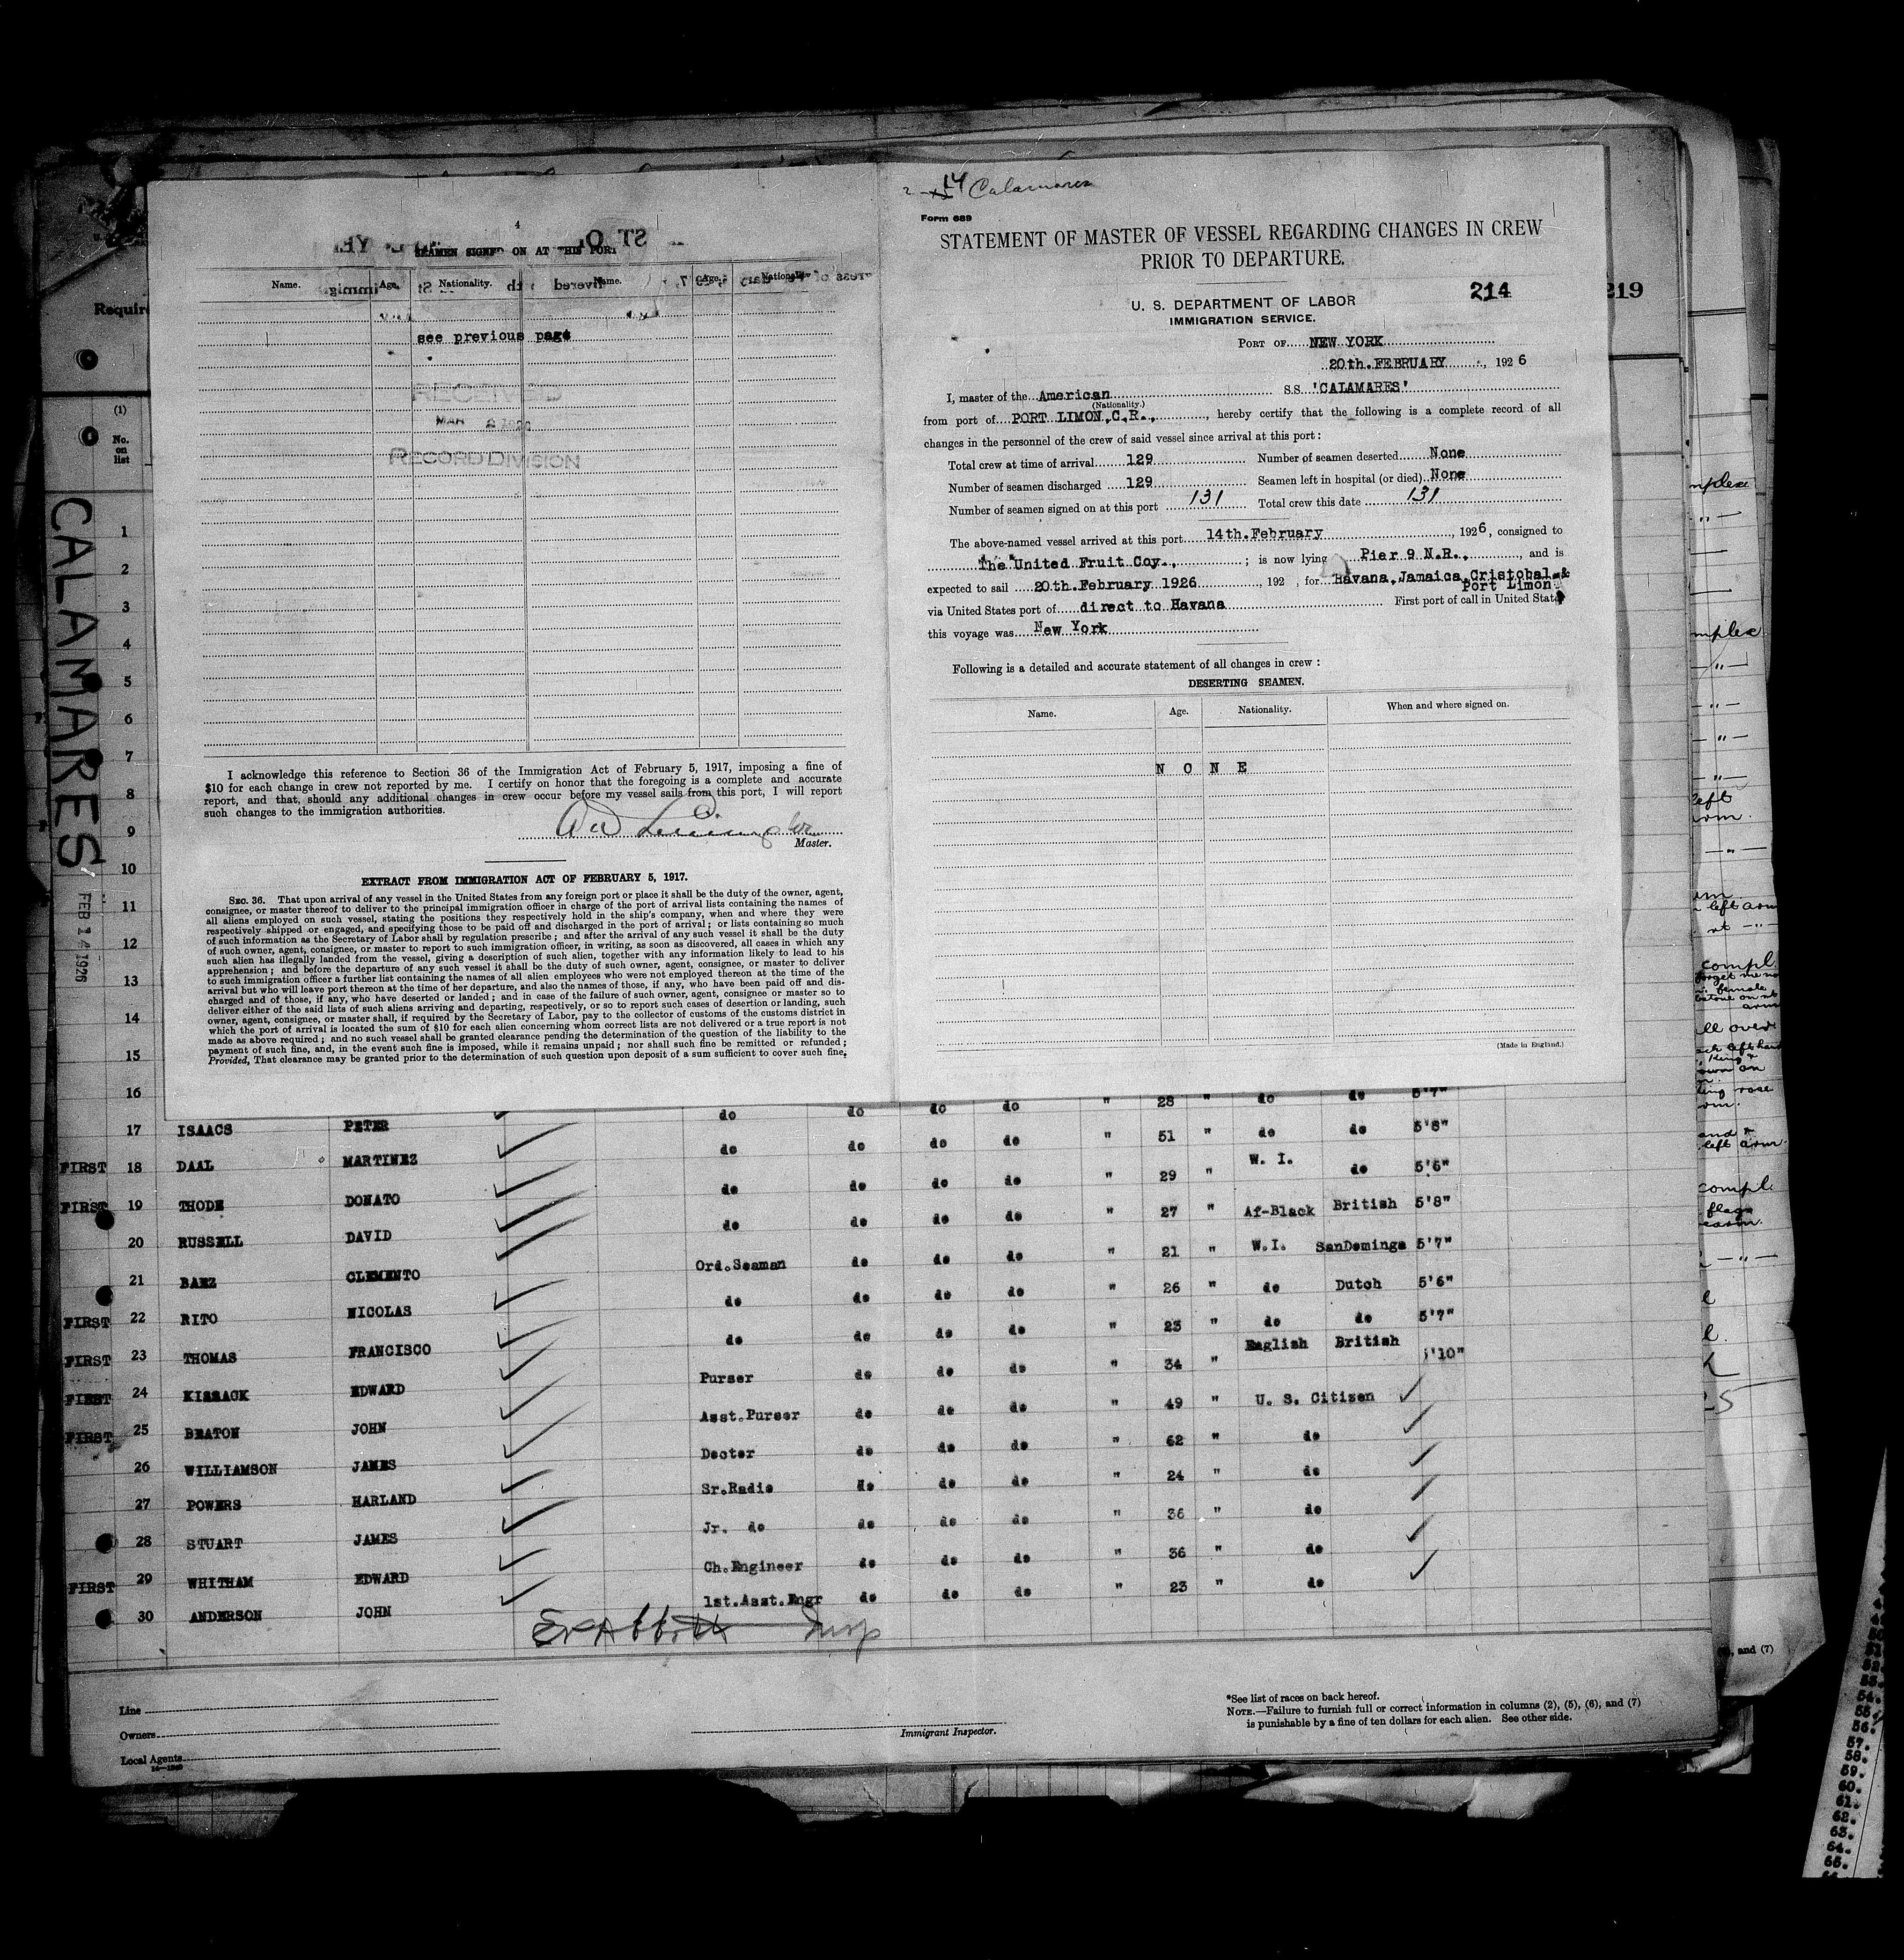 4
SEAMEN SIGNED ON AT THIS PORT
Name. Age. Nationality. Name. Age. Nationality.
see previous page
RECEIVED
MAR 2 1926
RECORD DIVISION
I acknowledge this reference to Section 36 of the Immigration Act of February 5, 1917, imposing a fine of
$10 for each change in crew not reported by me. I certify on honor that the foregoing is a complete and accurate
report, and that, should any additional changes in crew occur before my vessel sails from this port, I will report
such changes to the immigration authorities.
Master.
EXTRACT FROM IMMIGRATION ACT OF FEBRUARY 5, 1917.
SEC. 36. That upon arrival of any vessel in the United States from any foreign port or place it shall be the duty of the owner, agent,
consignee, or master thereof to deliver to the principal immigration officer in charge of the port of arrival lists containing the names of
all aliens employed on such vessel, stating the positions they respectively hold in the ship's company, when and where they were
respectively shipped or engaged, and specifying those to be paid off and discharged in the port of arrival; or lists containing so much
of such information as the Secretary of Labor shall by regulation prescribe; and after the arrival of any such vessel it shall be the duty
of such owner, agent, consignee, or master to report to such immigration officer, in writing, as soon as discovered, all cases in which any
such alien has illegally landed from the vessel, giving a description of such alien, together with any information likely to lead to his
apprehension; and before the departure of any such vessel it shall be the duty of such owner, agent, consignee, or master to deliver
to such immigration officer a further list containing the names of all alien employees who were not employed thereon at the time of the
arrival but who will leave port thereon at the time of her departure, and also the names of those, if any, who have been paid off and dis-
charged and of those, if any, who have deserted or landed; and in case of the failure of such owner, agent, consignee or master so to
deliver either of the said lists of such aliens arriving and departing, respectively, or so to report such cases of desertion or landing, such
owner, agent, consignee, or master shall, if required by the Secretary of Labor, pay to the collector of customs of the customs district in
which the port of arrival is located the sum of $10 for each alien concerning whom correct lists are not delivered or a true report is not
made as above required; and no such vessel shall be granted clearance pending the determination of the question of the liability to the
payment of such fine, and, in the event such fine is imposed, while it remains unpaid; nor shall such fine be remitted or refunded;
Provided, That clearance may be granted prior to the determination of such question upon deposit of a sum sufficient to cover such fine.
14 Calamares
Form 689
STATEMENT OF MASTER OF VESSEL REGARDING CHANGES IN CREW
PRIOR TO DEPARTURE.
214
U. S. DEPARTMENT OF LABOR
IMMIGRATION SERVICE.
PORT OF NEW YORK
20th.FEBRUARY, 1926
I, master of the American S.S. 'CALAMARES'
(Nationality.)
from port of PORT LIMON,C.R., , hereby certify that the following is a complete record of all
changes in the personnel of the crew of said vessel since arrival at this port:
Total crew at time of arrival 129 Number of seamen deserted None
Number of seamen discharged 129 Seamen left in hospital (or died) None
Number of seamen signed on at this port 131 Total crew this date 131
The above-named vessel arrived at this port 14th.February, 1926, consigned to
The United Fruit Coy., ; is now lying Pier 9 N.R., , and is
expected to sail 20th.February 1926, 192 , for Havana,Jamaica,Cristobal &
Port Limon
via United States port of direct to Havana First port of call in United States
this voyage was New York
Following is a detailed and accurate statement of all changes in crew:
DESERTING SEAMEN.
Name. Age. Nationality. When and where signed on.
N O N E
(Made in England.)
219
Requir
(1)
No.
on
list
CALAMARES
FEB 14 1926
1
2
3
4
5
6
7
8
9
10
11
12
13
14
15
16 do do do do " 28 " do do 5'7"
17 ISAACS PETER do do do do " 51 " do do 5'8"
FIRST 18 DAAL MARTINEZ do do do do " 29 " W. I. do 5'6"
FIRST 19 THODE DONATO do do do do " 27 " Af-Black British 5'8"
20 RUSSELL DAVID Ord.Seaman do do do " 21 " W.I. SanDomingo 5'7"
21 BAEZ CLEMENTO do do do do " 26 " do Dutch 5'6"
FIRST 22 RITO NICOLAS do do do do " 23 " do do 5'7"
FIRST 23 THOMAS FRANCISCO Purser do do do " 34 " English British 5'10"
FIRST 24 KISSACK EDWARD Asst.Purser do do do " 49 " U. S. Citizen
FIRST 25 BEATON JOHN Doctor do do do " 62 " do
26 WILLIAMSON JAMES Sr.Radio do do do " 24 " do
27 POWERS HARLAND Jr. do do do do " 36 " do
28 STUART JAMES Ch.Engineer do do do " 36 " do
FIRST 29 WHITHAM EDWARD 1st.Asst.Engr do do do " 23 " do
30 ANDERSON JOHN
Insp
Line
Owners
Local Agents
Immigrant Inspector.
*See list of races on back hereof.
NOTE.—Failure to furnish full or correct information in columns (2), (5), (6), and (7)
is punishable by a fine of ten dollars for each alien. See other side.
and (7)
57.
58.
59.
60.
61.
62.
63.
64.
65.